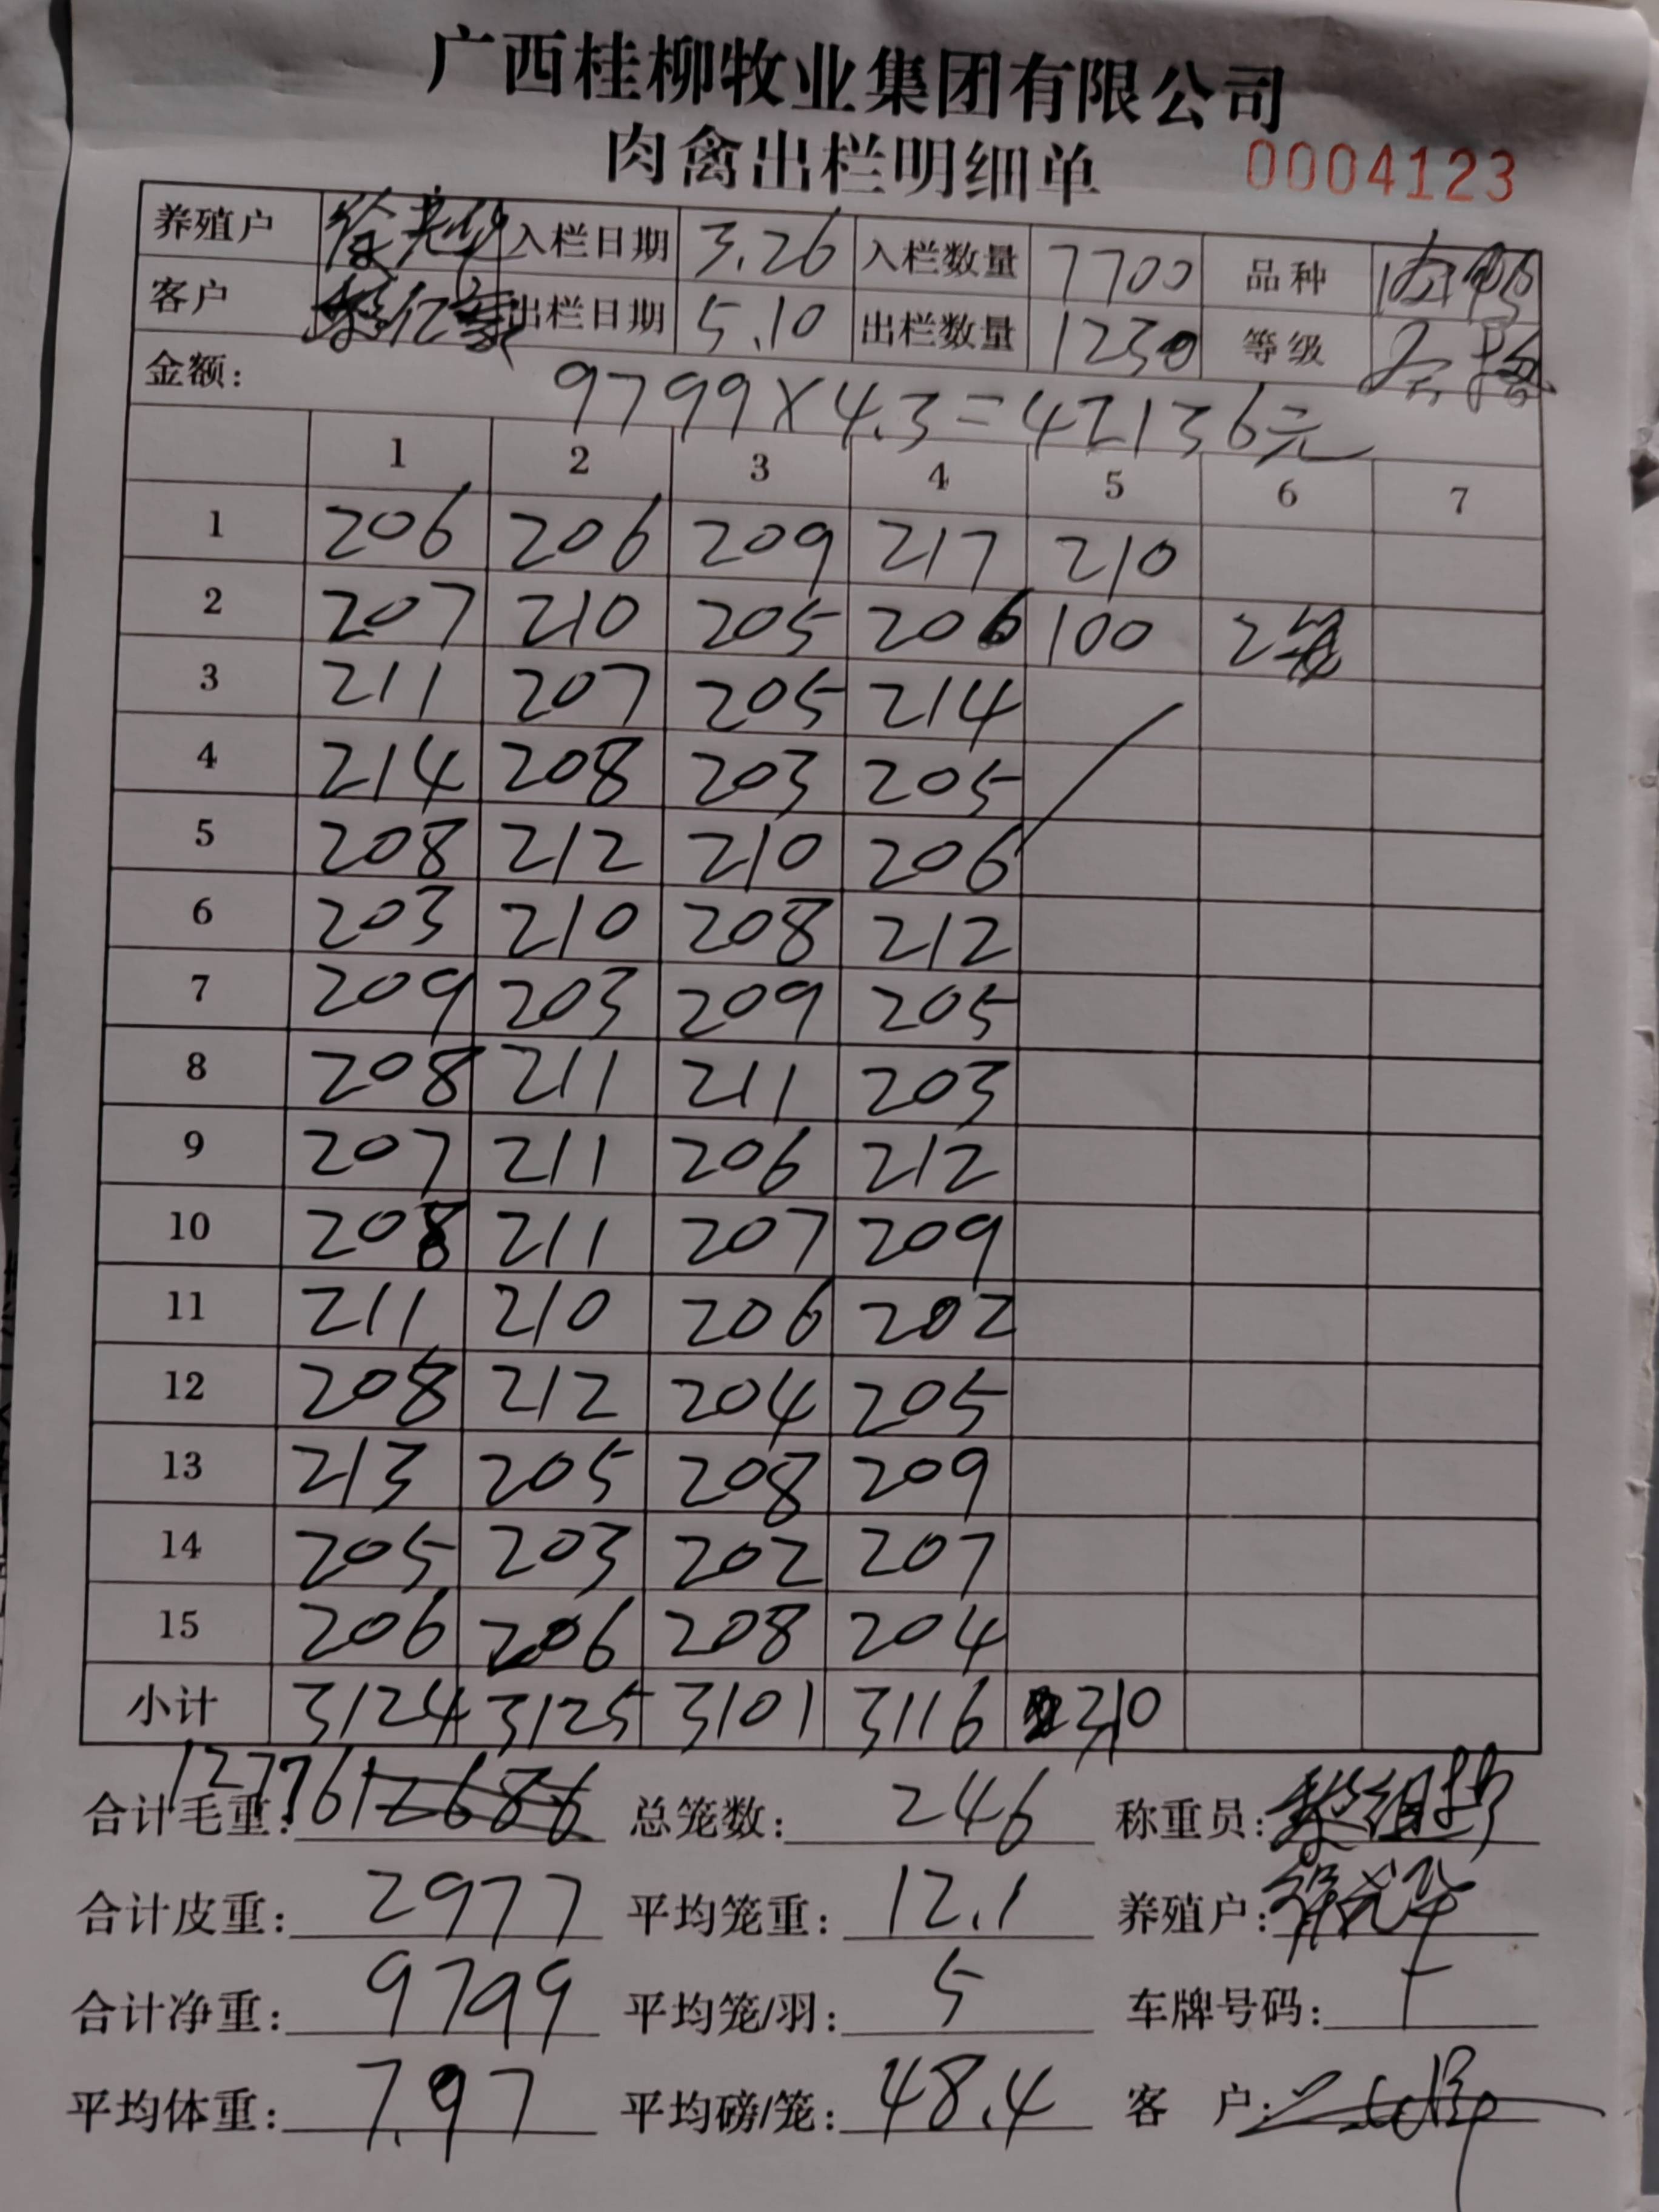 广西桂柳牧业集团有限公司
肉禽出栏明细单 0004123
养殖户 入栏日期 3.26 入栏数量 7700 品种
客户 出栏日期 5.10 出栏数量 1230 等级
金额: 9799×4.3=42136元
1 2 3 4 5 6 7
1 206 206 209 217 210
2 207 210 205 206 100 2笼
3 211 207 205 214
4 214 208 203 205
5 208 212 210 206
6 203 210 208 212
7 209 203 209 205
8 208 211 211 203
9 207 211 206 212
10 208 211 207 209
11 211 210 206 202
12 208 212 204 205
13 213 205 208 209
14 205 203 202 207
15 206 206 208 204
小计 3124 3125 3101 3116 310
合计毛重: 12776 12686 总笼数: 246 称重员:
合计皮重: 2977 平均笼重: 12.1 养殖户:
合计净重: 9799 平均笼/羽: 5 车牌号码:
平均体重: 7.97 平均磅/笼: 48.4 客 户: